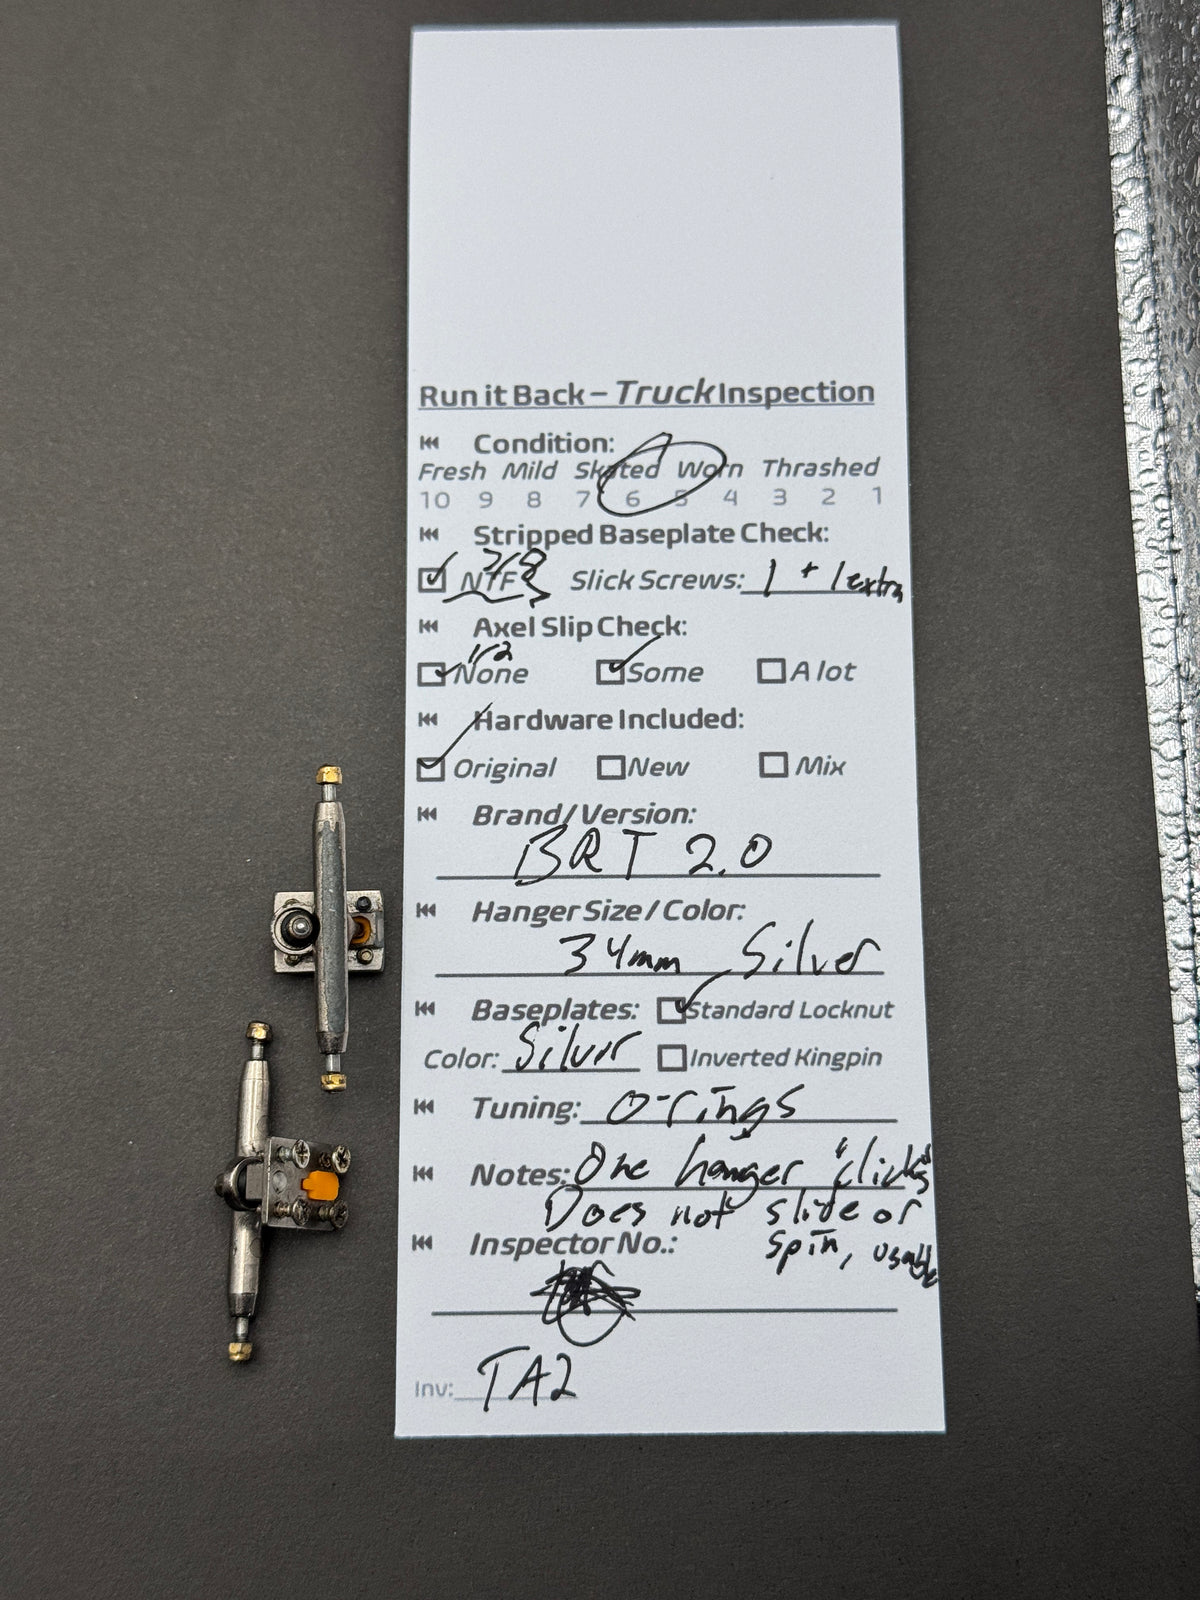 Run it Back – Truck Inspection
Condition:
Fresh Mild Skated Worn Thrashed
10 9 8 7 6 5 4 3 2 1
Stripped Baseplate Check:
7/8
NTF Slick Screws: 1 + 1 extra
Axel Slip Check:
1/2
None Some A lot
Hardware Included:
Original New Mix
Brand/Version:
BRT 2.0
Hanger Size / Color:
34mm Silver
Baseplates: Standard Locknut
Color: Silver Inverted Kingpin
Tuning: O-rings
Notes: One hanger "clicks"
Does not slide or
Inspector No.: spin, usable
Inv: TA2